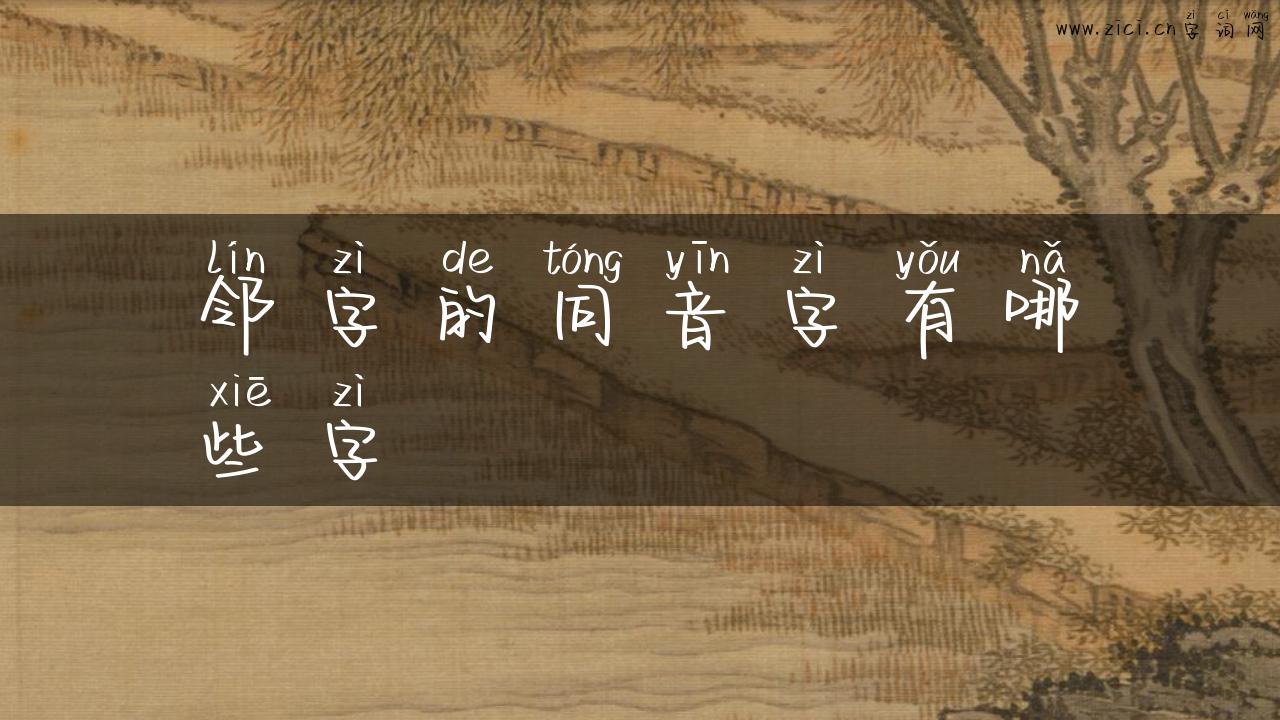 zì cí wǎng
www.zici.cn 字词网
lín zì de tóng yīn zì yǒu nǎ
邻字的同音字有哪
xiē zì
些字